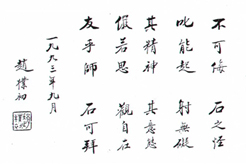 不可侮 石之
叱能起 射無礙
其精神 其意態
儼若思 觀自在
友乎師 石可拜
一九九三年九月
趙樸初